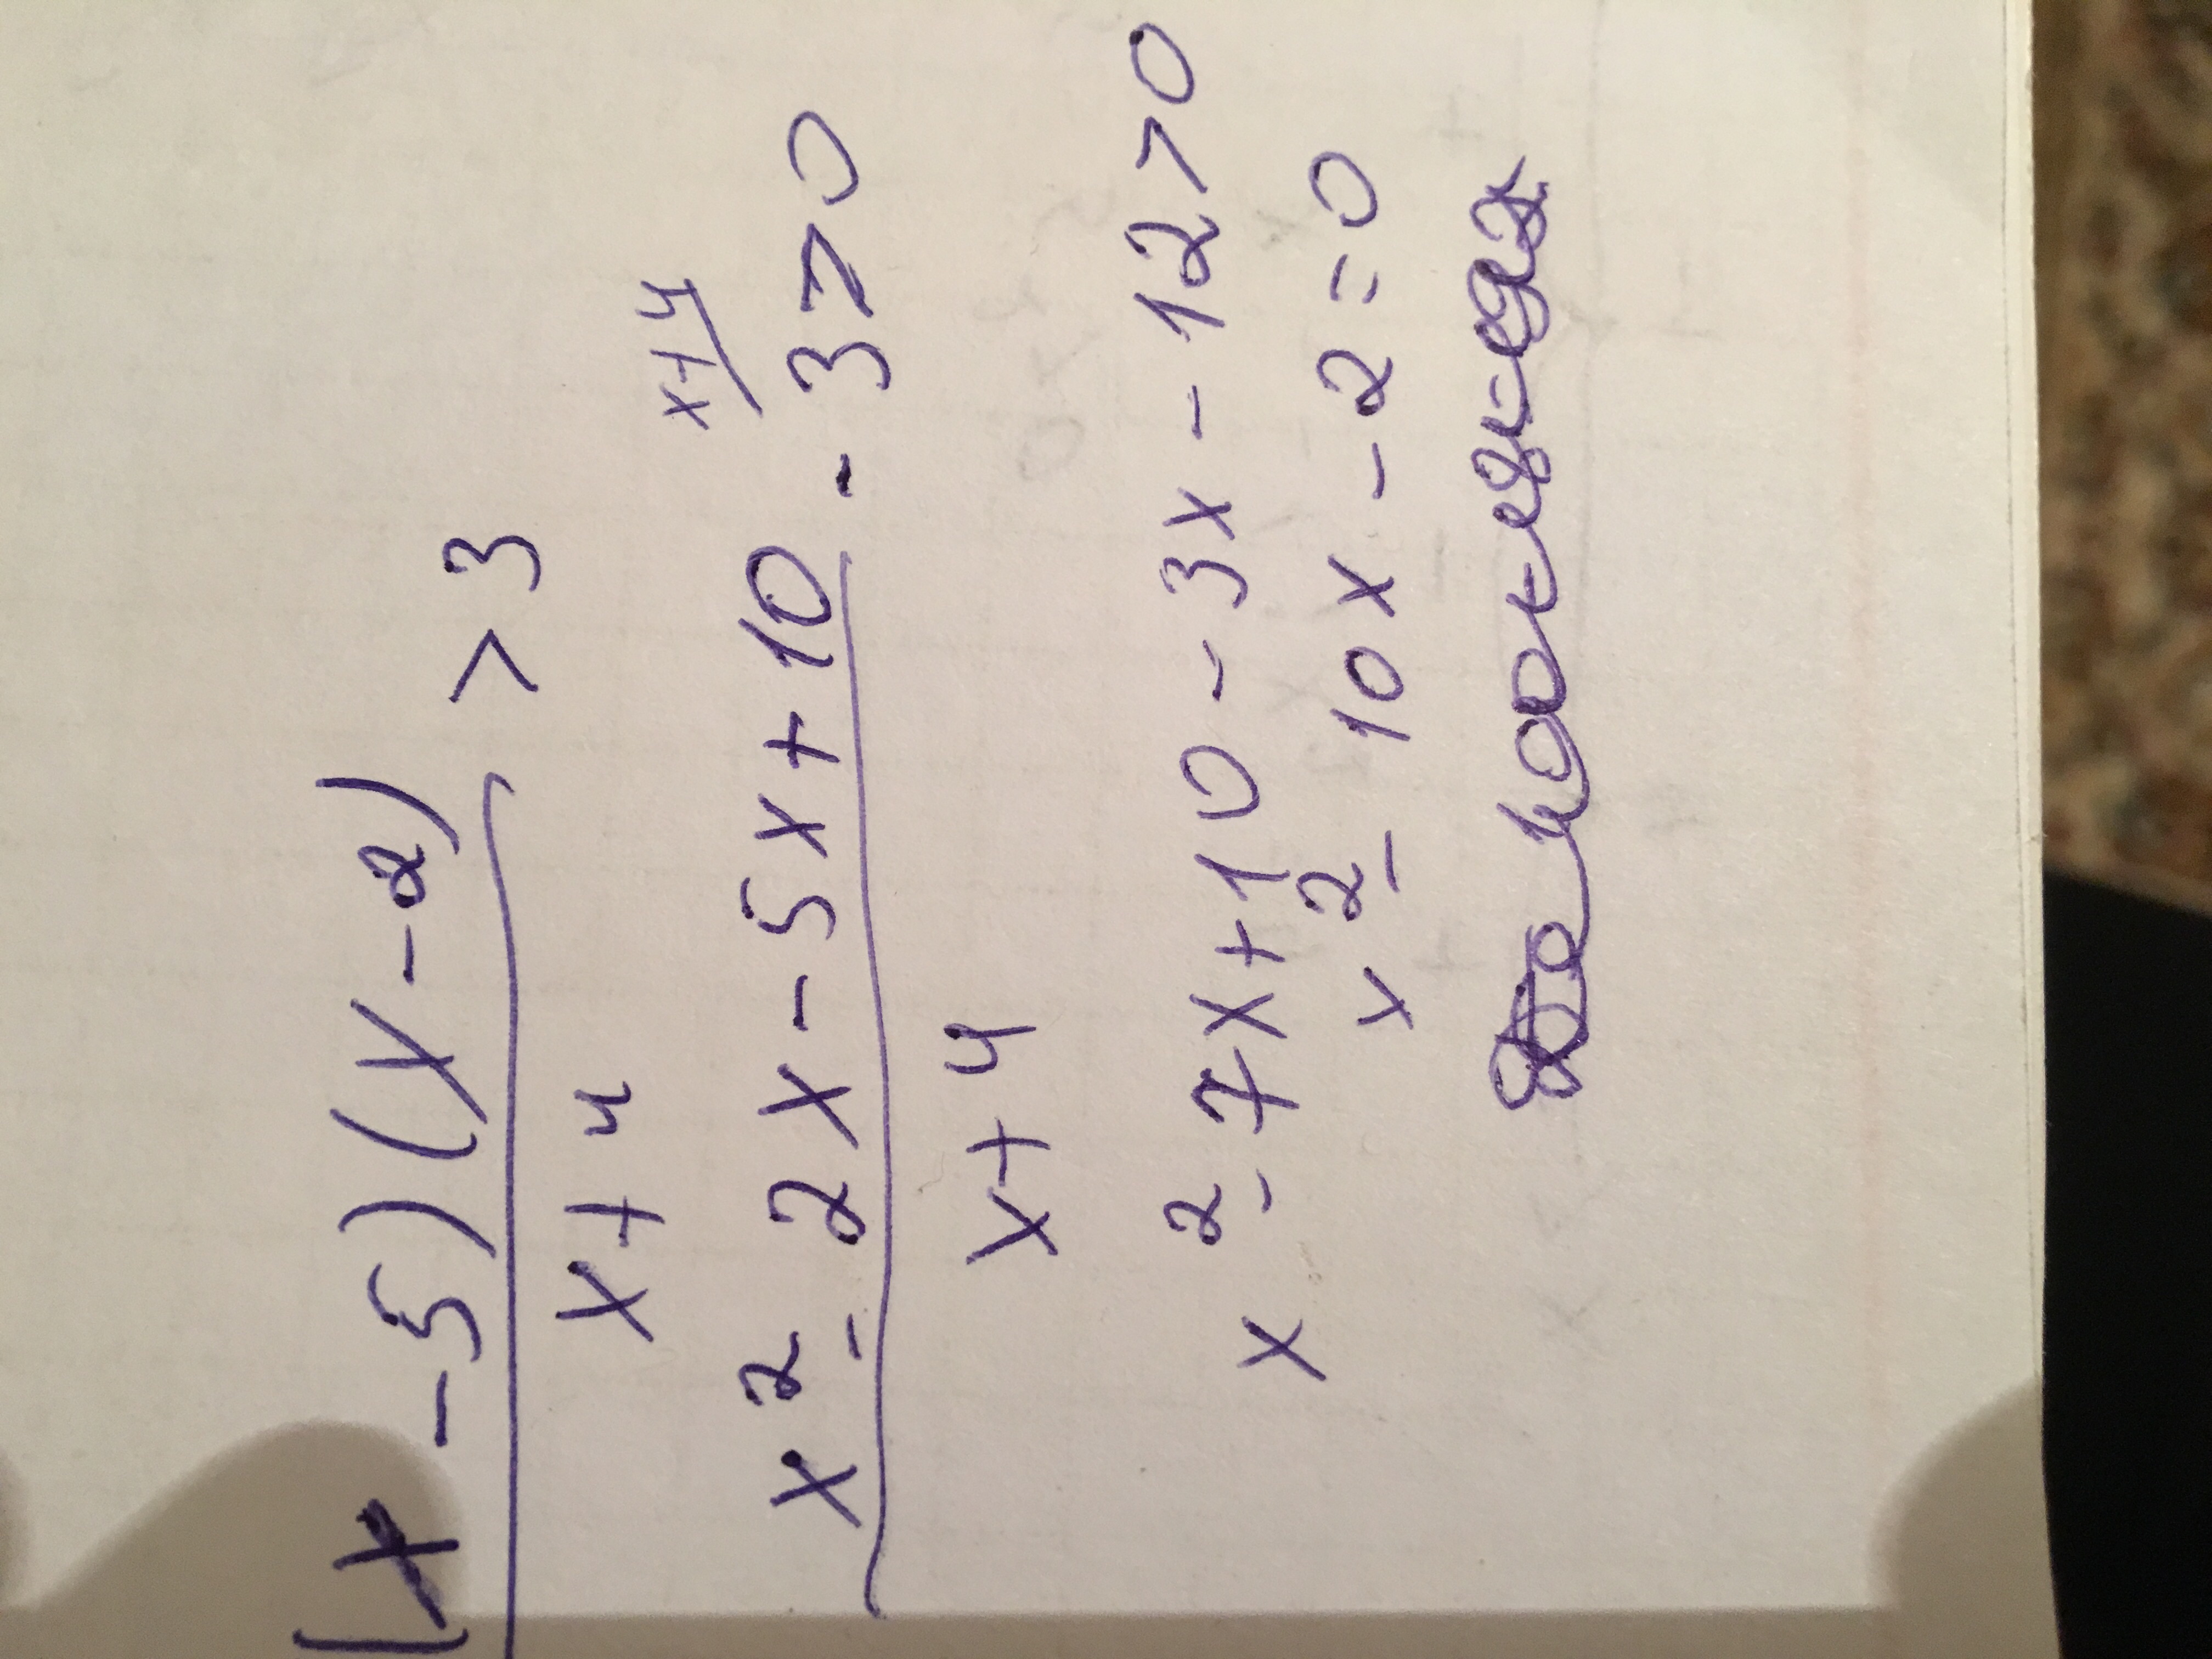 (x-5)(x-2) > 3
x+4
x+4
x²-2x-5x+10 - 3>0
x+4
x²-7x+10-3x-12>0
x²-10x-2=0